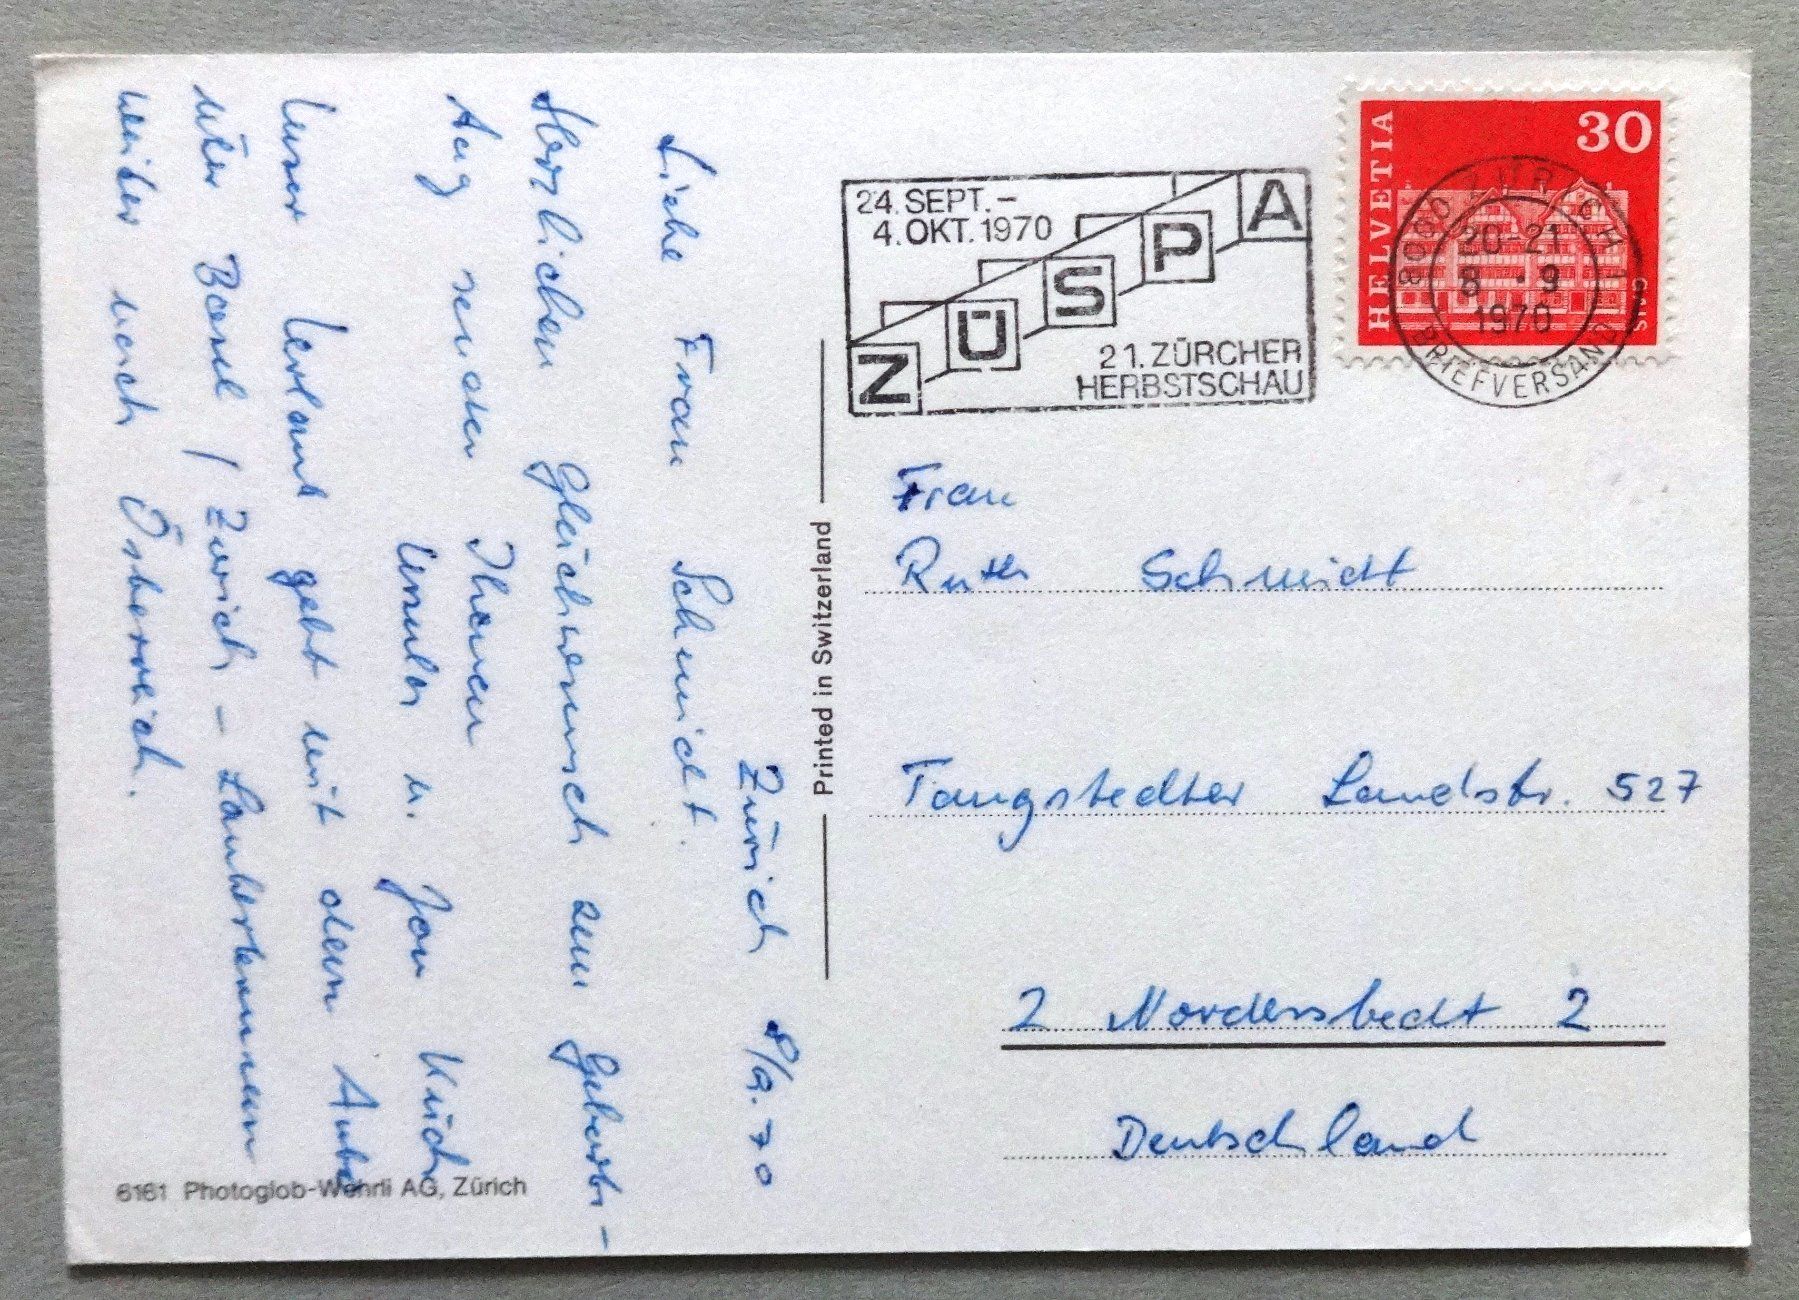 Zürich 8/9.70
Liebe Frau Schmidt.
Herzlichen Glückwunsch zum Geburts-
tag senden Ihnen
Ursula u. Jan
Unser Urlaub geht mit dem Auto
über Basel / Zürich -
weiter nach Österreich.
Printed in Switzerland
6161 Photoglob-Wehrli AG, Zürich
24. SEPT. -
4. OKT. 1970
ZÜSPA
21. ZÜRCHER
HERBSTSCHAU
HELVETIA
30
GAIS
8000 ZÜRICH 1
20-21
8.-9
1970
BRIEFVERSAND
Frau
Ruth Schmidt
Tangstedter Landstr. 527
2 Norderstedt 2
Deutschland